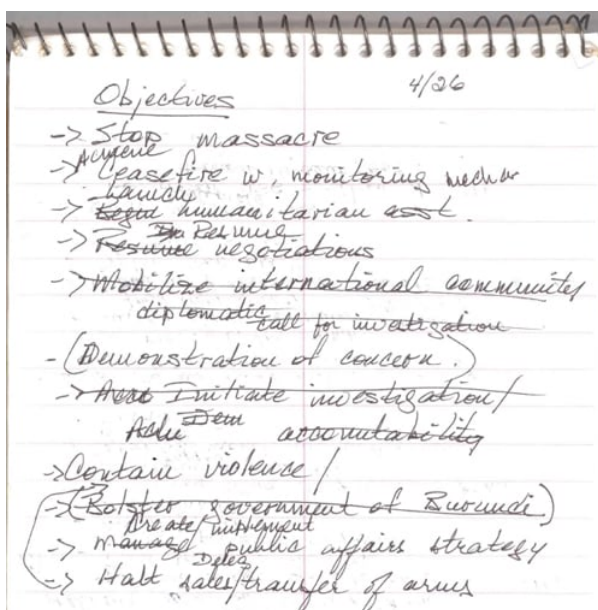 4/26
Objectives
-> Stop massacre
Achieve
-> Ceasefire w. monitoring mechan
Launch
-> Begin humanitarian asst.
Resume
-> Resume negotiations
-> Mobilize international community
diplomatic call for investigation
- (Demonstration of concern.)
-> Initiate investigation/
accountability
-> Contain violence/
-> (Bolster government of Burundi)
Create/implement
-> Manage public affairs strategy
-> Halt sales/transfer of arms